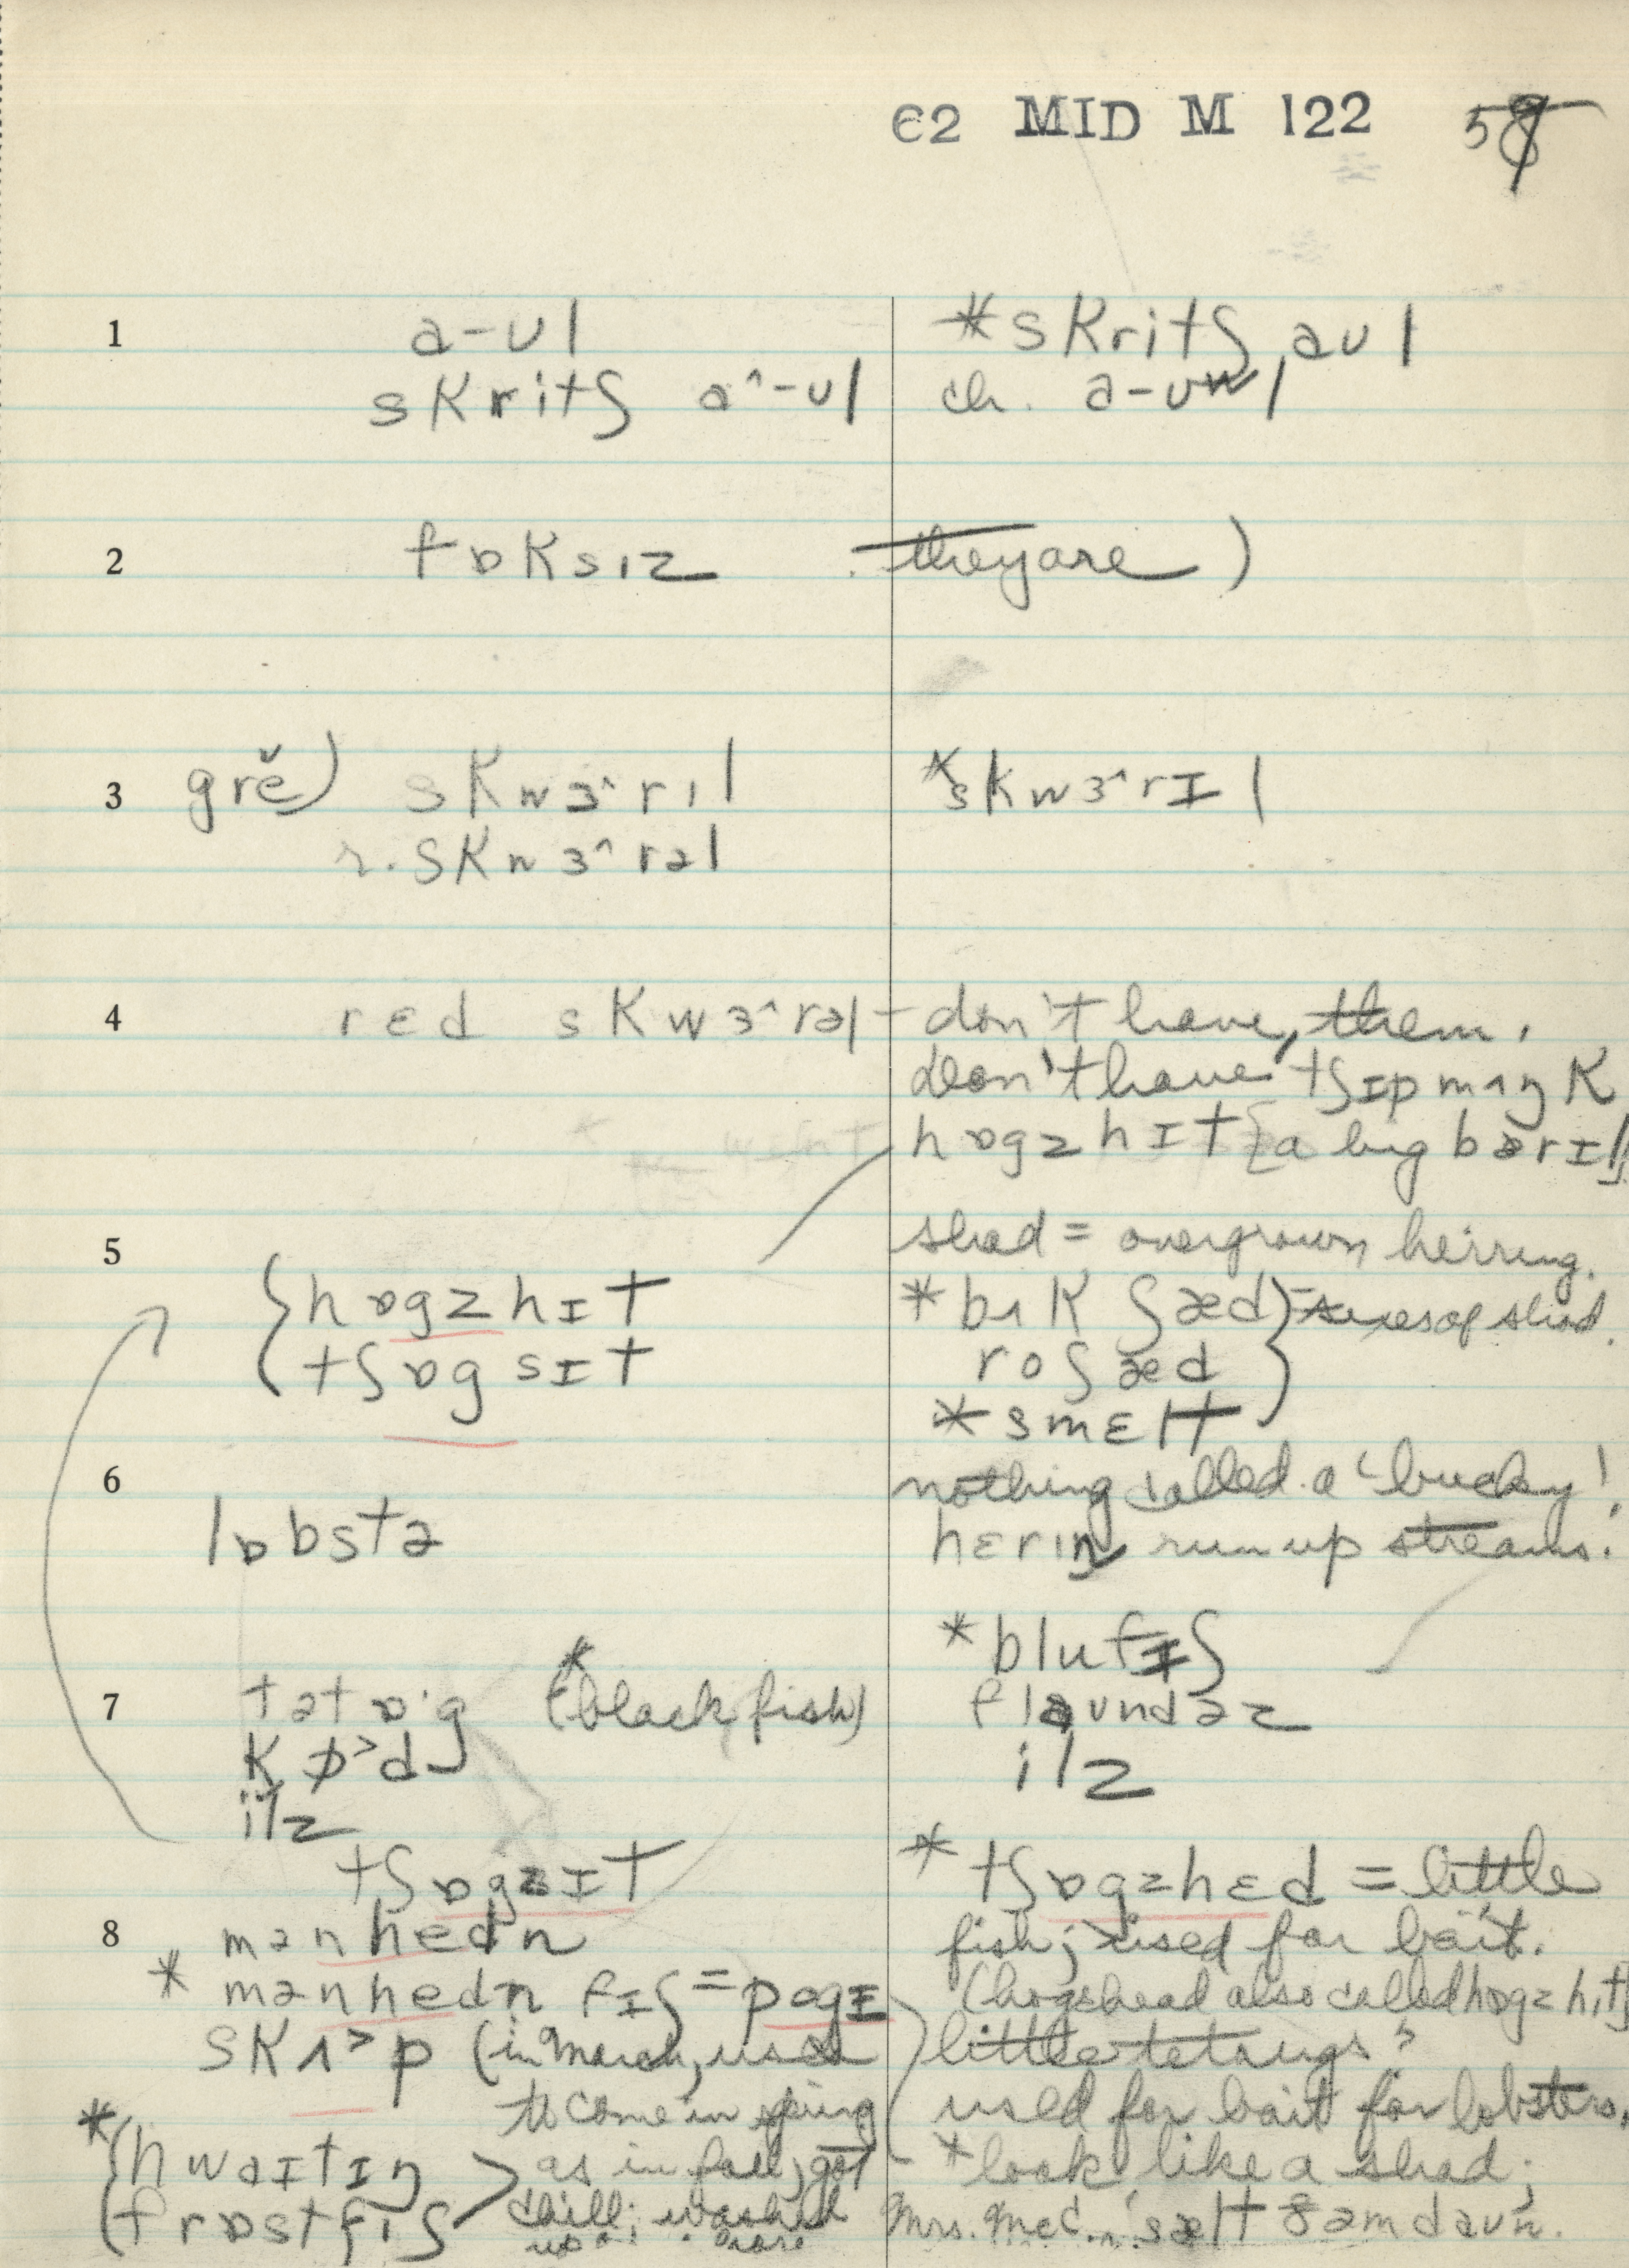 C2 MID M 122 58
1 a-ʊl *skritʃ aʊl
skritʃ a^-ʊl ch. a-ʊwl
2 fɒksɪz they are )
3 grĕ) skwɜ^rɪl *skwɜ^rɪl
r. skwɜ^rəl
4 rɛd skwɜ^rəl – don't have, them.
Don't have tʃɪpmʌŋk
hɒgzhɪt {a big bærɪl}
shad = overgrown herring.
5 {hɒgzhɪt *bʌk ʃæd} = sexes of shad.
tʃɒgsɪt ro ʃæd
*smɛlt
6 nothing called a 'bucky'!
lɒbstə hɛrɪŋ run up streams.
*blufɪʃ
7 tətɒ·g *(blackfish) flaʊndəz
kɒ>d ilz
ilz
tʃɒgzɪt *tʃɒgzhɛd = little
8 mənhedn fish; used for bait.
* mənhedn fɪʃ = pogɪ (hogshead also called hɒgzhɪt)
skʌ>p (in March, used little tetaugs?
to come in spring used for bait for lobsters.
*{hwaɪtɪŋ > as in fall; got *look like a shad;
frɒstfɪʃ chill; washed Mrs. McC.: sælt ðəm daʊn.
up on shore